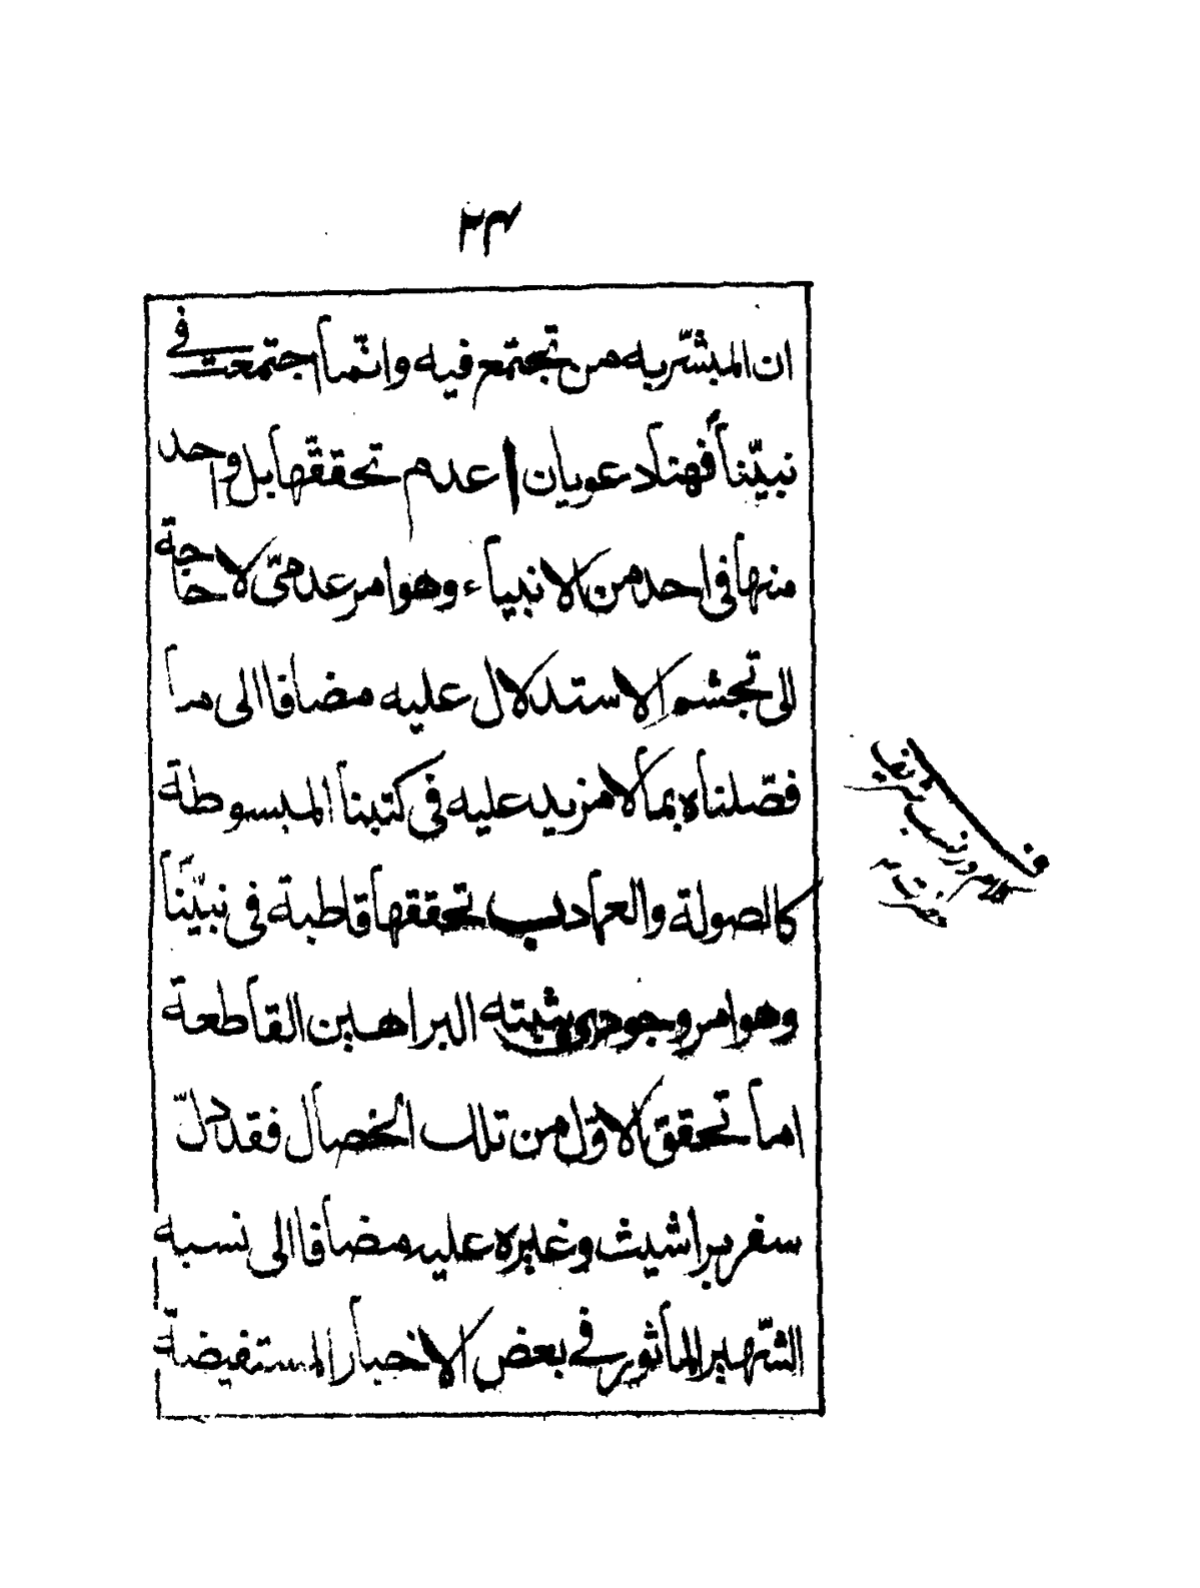 ۲۳
ان المبشّر به من تجتمع فيه وانّما اجتمعت في
نبيّنا فهنا دعويان ا عدم تحققها بل واحد
منها فى احد من الانبياء وهو امر عدمىّ لا حاجة
الى تجشم الاستدلال عليه مضافا الى ما
فصّلناه بما لا مزيد عليه فى كتبنا المبسوطة
كالصولة والعماد ب تحققها قاطبة فى نبيّنا
وهو امر وجودى يثبته البراهين القاطعة
اما تحقق الاوّل من تلك الخصال فقد دلّ
سفر براشيث وغيره عليه مضافا الى نسبه
الشّهير المأثور في بعض الاخبار المستفيضة